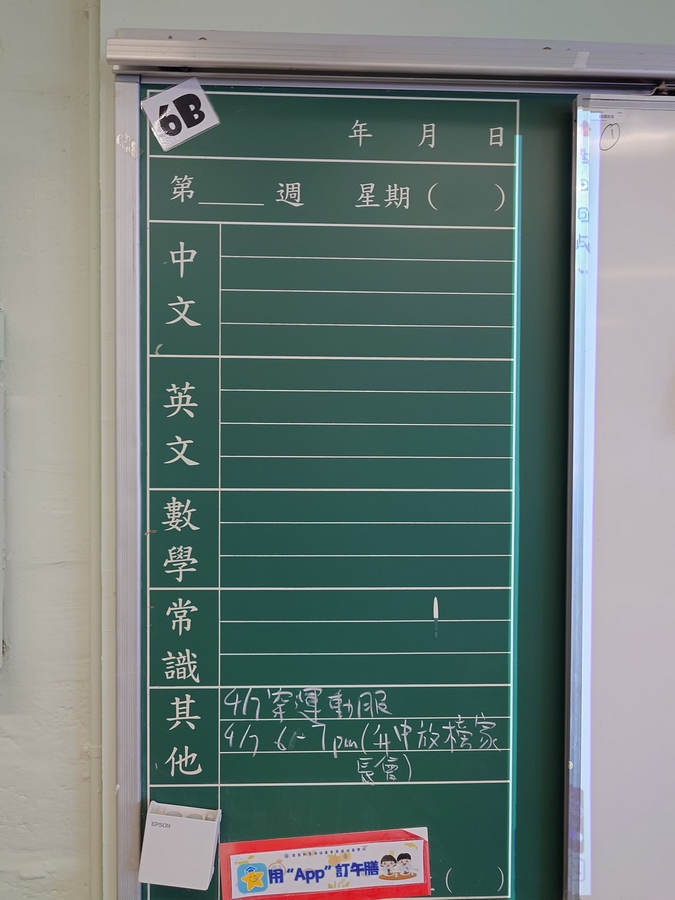 6B
年 月 日
第____週 星期( )
中文
英文
數學
常識
其他
4/7 穿運動服
4/7 6-7pm(升中放榜家
長會)
EPSON
用“App”訂午膳
( )